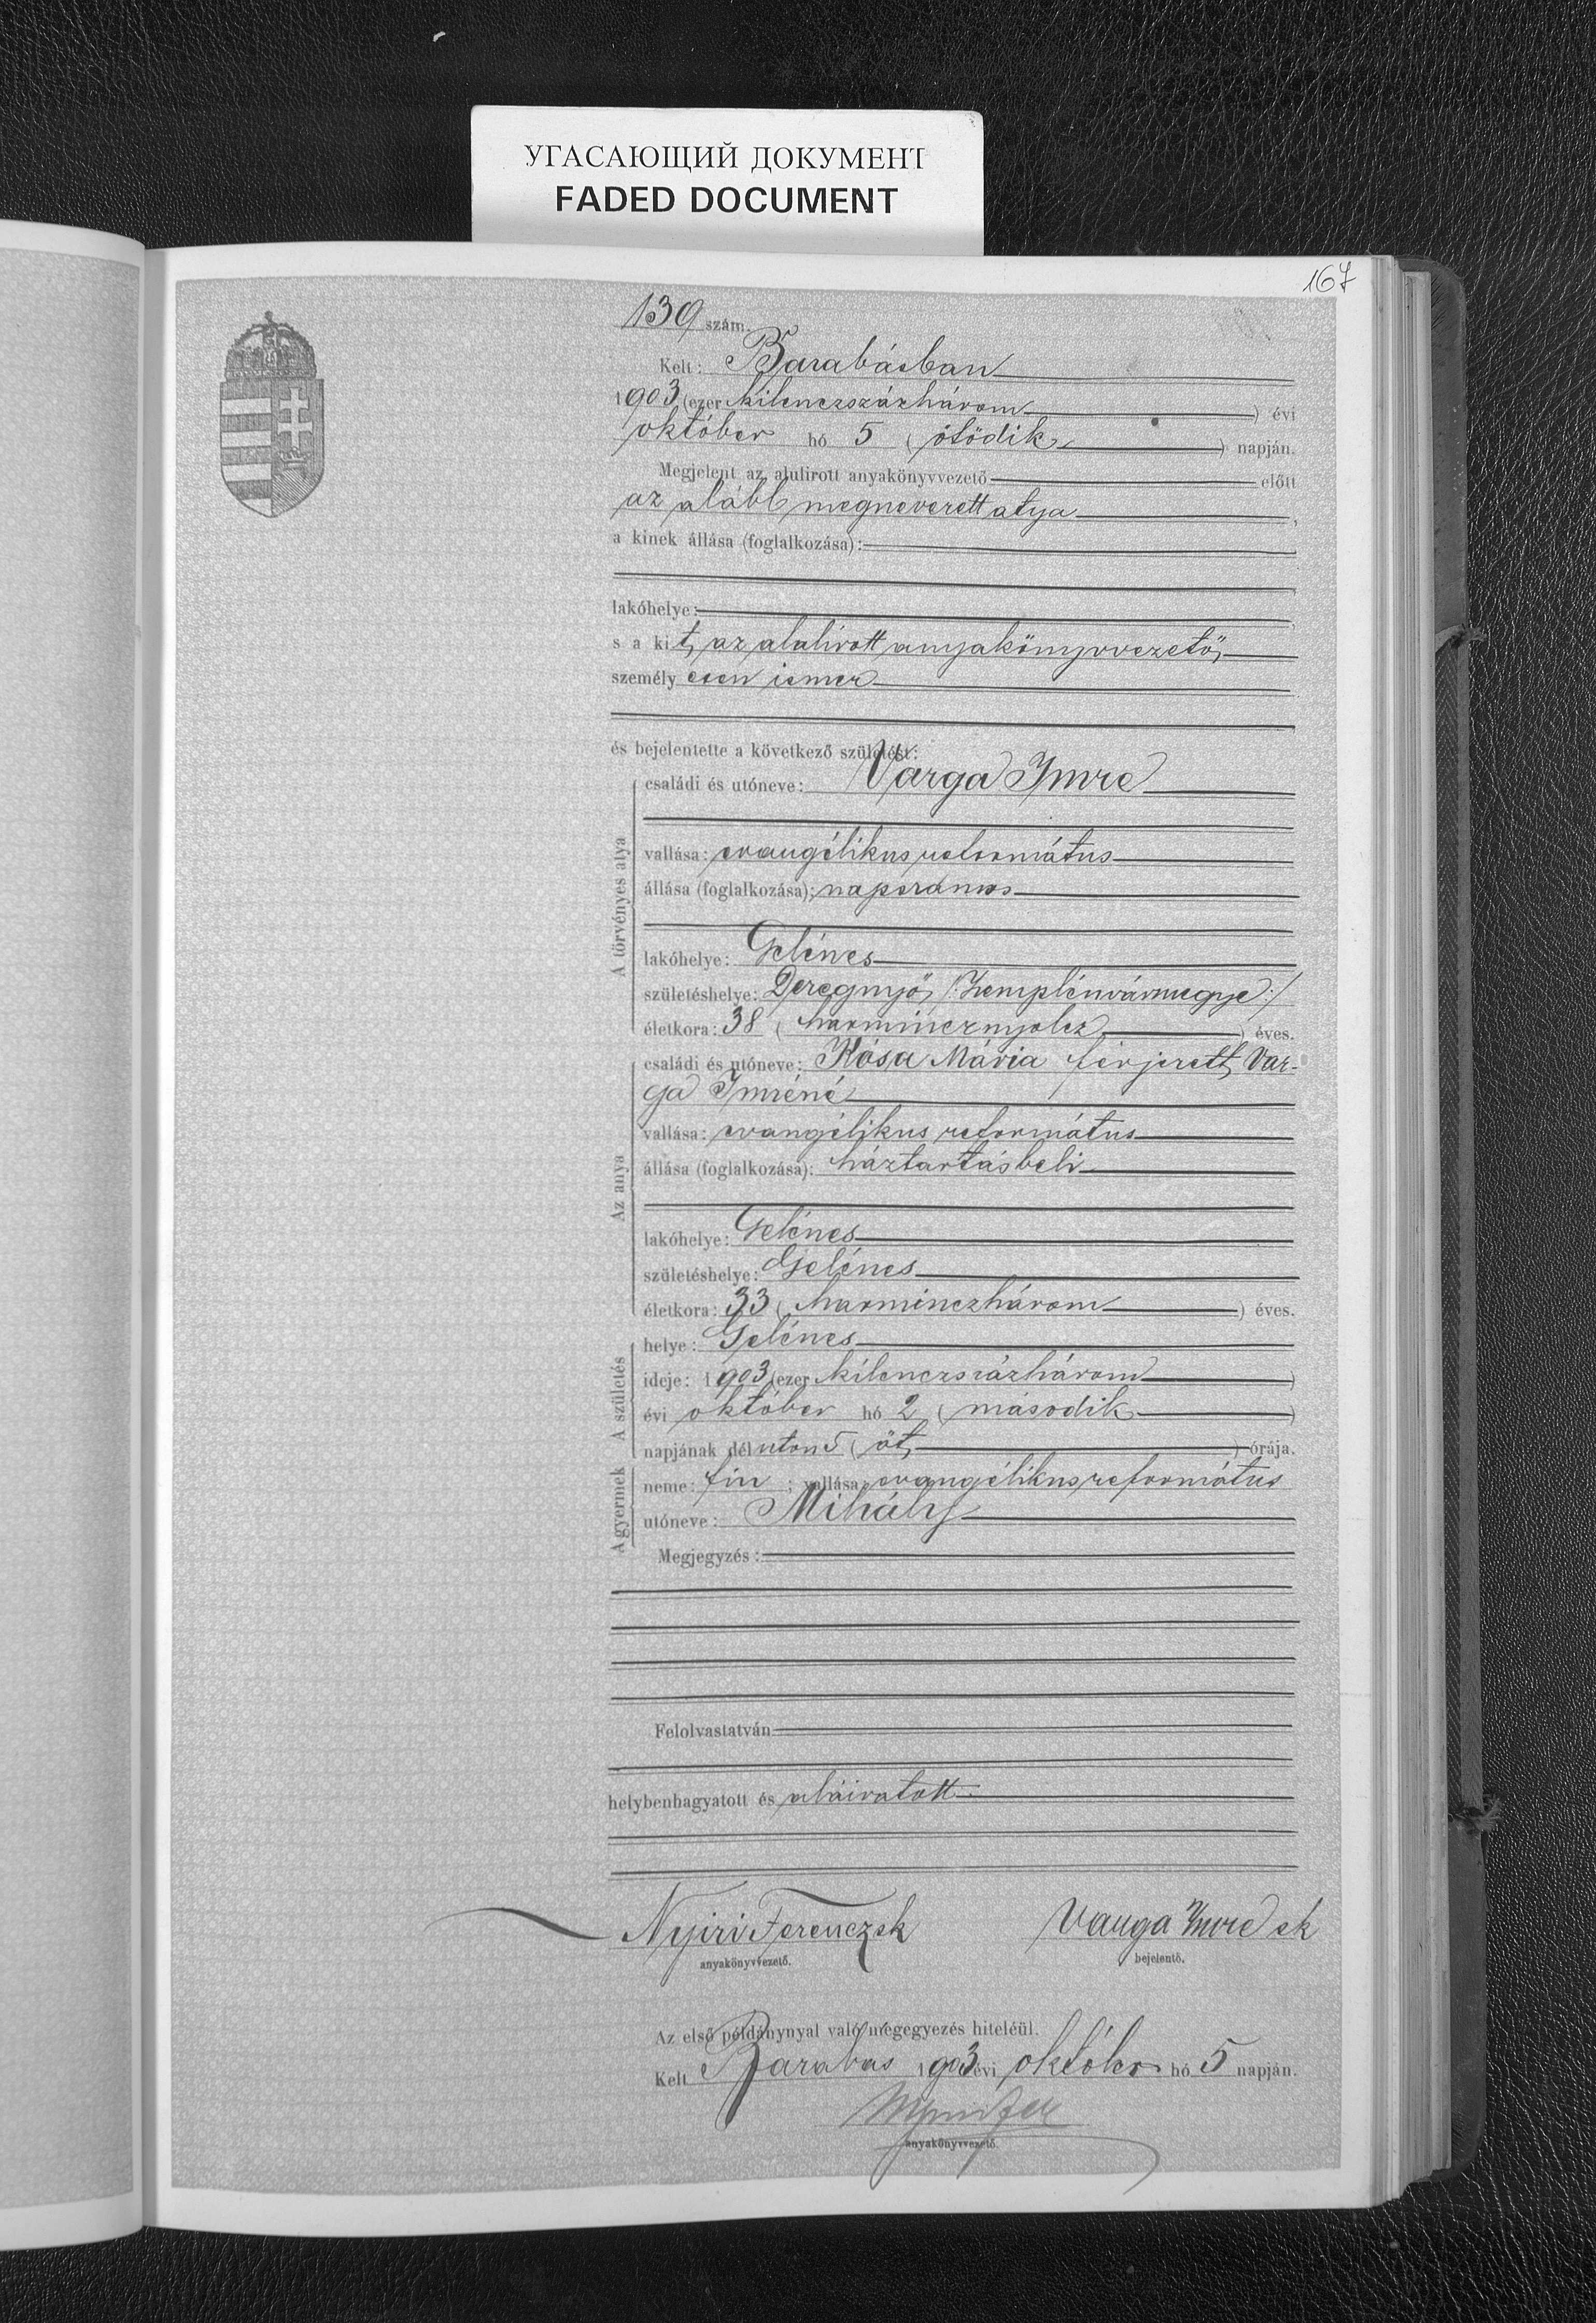 УГАСАЮЩИЙ ДОКУМЕНТ
FADED DOCUMENT
167
139 szám.
Kelt: Barabásban
1903 (ezer kilenczszázhárom) évi
október hó 5 (ötödik) napján.
Megjelent az alulirott anyakönyvvezető előtt
az alább megnevezett atya,
a kinek állása (foglalkozása):
lakóhelye:
s a kit, az alulirott anyakönyvvezető,
személyesen ismer
és bejelentette a következő születést:
A törvényes atya
családi és utóneve: Varga Imre
vallása: evangélikus református
állása (foglalkozása): napszámos
lakóhelye: Gelénes
születéshelye: Deregnyő, /:Zemplénvármegye:/
életkora: 38 (harmincznyolcz) éves.
Az anya
családi és utóneve: Kósa Mária férjezett, Var-
ga Imréné
vallása: evangélikus református
állása (foglalkozása): háztartásbeli
lakóhelye: Gelénes
születéshelye: Gelénes
életkora: 33 (harminczhárom) éves.
A születés
helye: Gelénes
ideje: 1903 (ezer kilenczszázhárom)
évi október hó 2 (második)
napjának délután 5 (öt) órája.
A gyermek
neme: fiu; vallása: evangélikus református
utóneve: Mihály
Megjegyzés:
Felolvastatván
helybenhagyatott és aláiratott.
Nyiri Ferencz sk Varga Imre sk
anyakönyvvezető. bejelentő.
Az első példánynyal való megegyezés hiteléül.
Kelt Barabás 1903 évi október hó 5 napján.
anyakönyvvezető